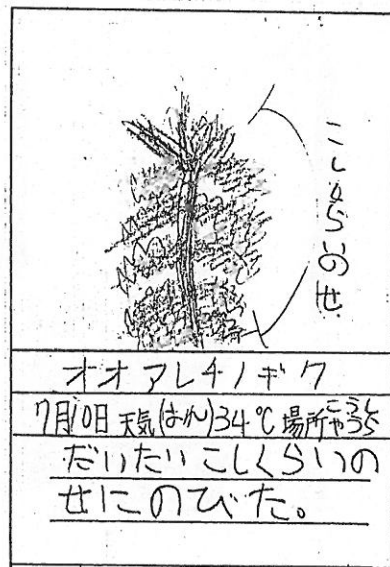 こしくらいのせ
オオアレチノギク
7月10日 天気(はれ)34℃ 場所こうしゃうら
だいたいこしくらいの
せにのびた。